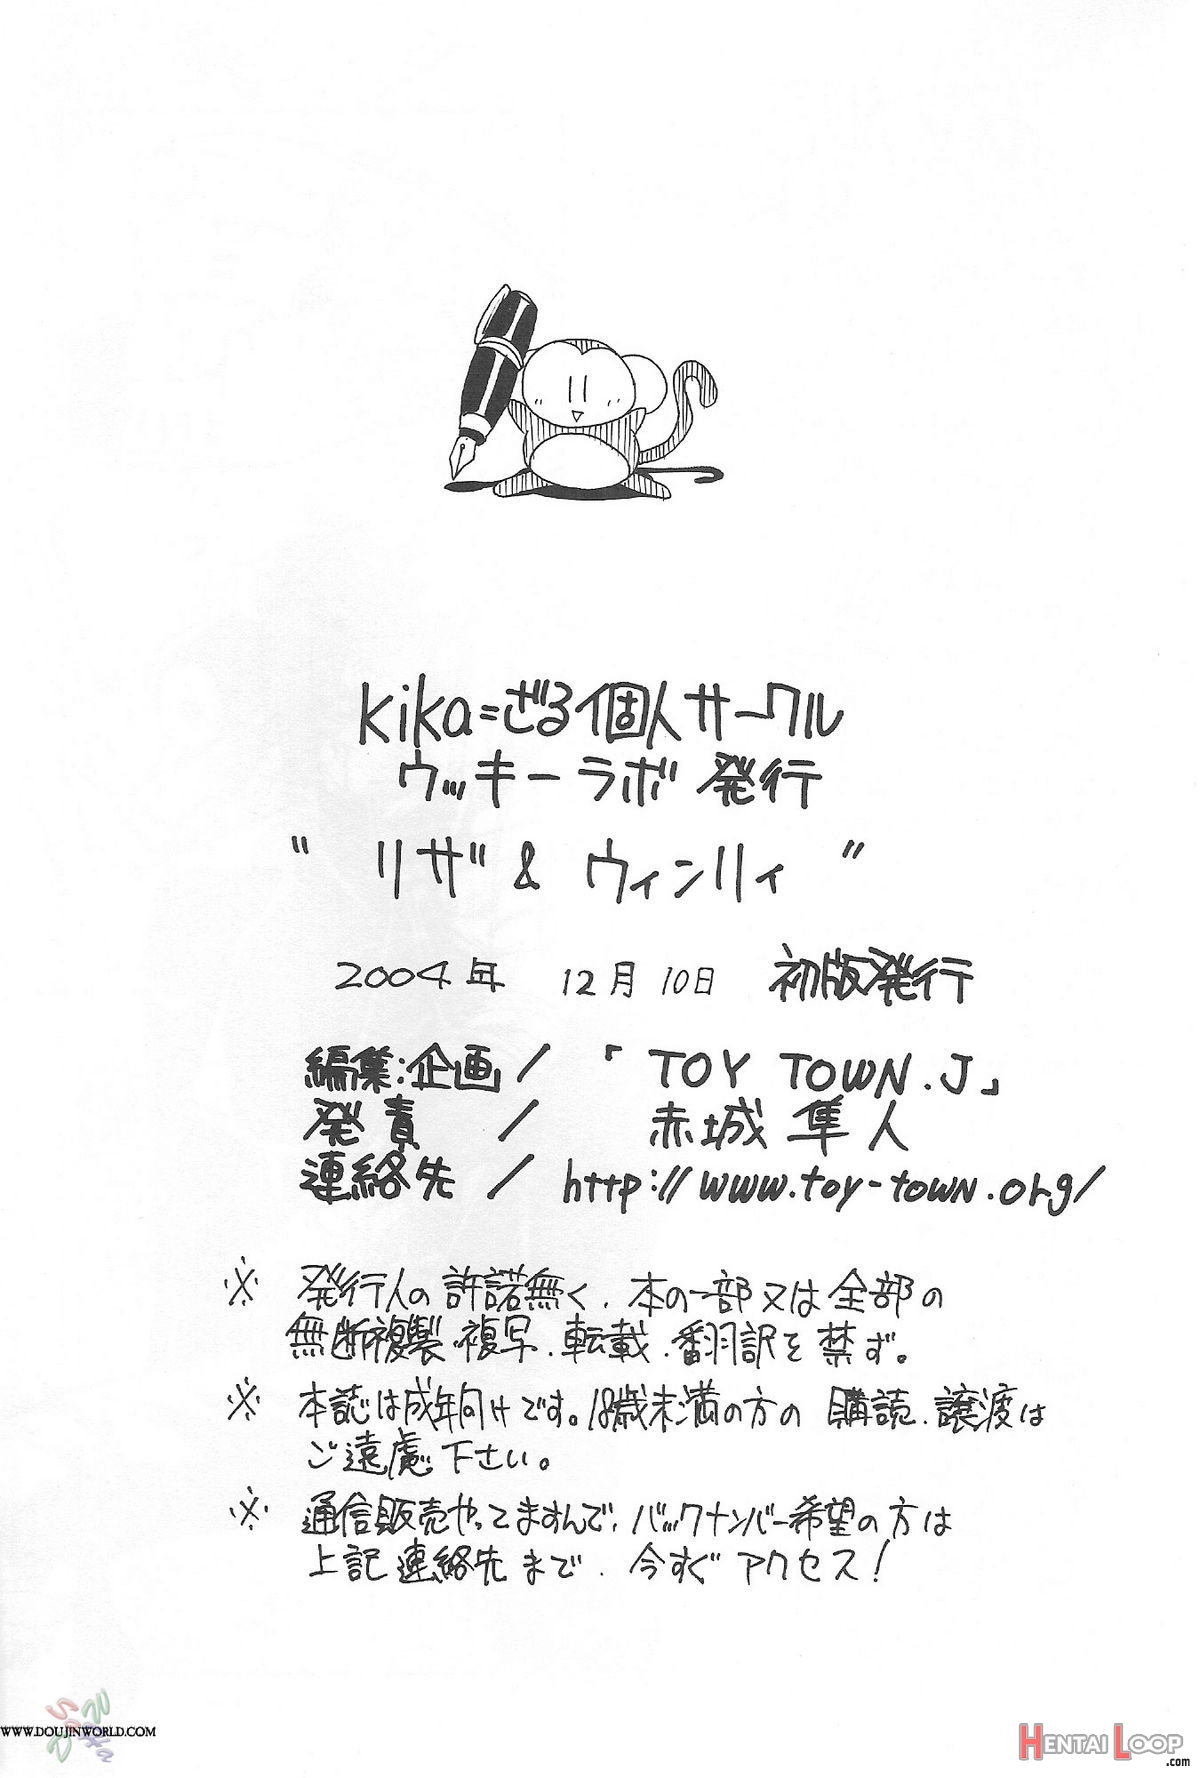 kika=ざる個人サークル
ウッキーラボ 発行
" リザ & ウィンリィ "
2004年 12月10日 初版発行
編集:企画 / 「TOY TOWN.J」
発責 / 赤城 隼人
連絡先 / http://www.toy-town.org/
※ 発行人の許諾無く、本の一部又は全部の
無断複製・複写、転載、翻訳を禁ず。
※ 本誌は成年向けです。18歳未満の方の 購読、譲渡は
ご遠慮下さい。
※ 通信販売やってますんで、バックナンバー希望の方は
上記連絡先まで、今すぐアクセス!
WWW.DOUJINWORLD.COM
HENTAI LOOP
.com